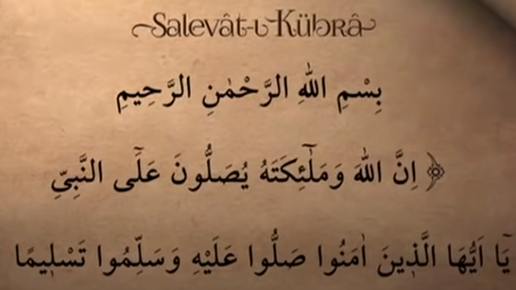 Salevât-ı Kübrâ
بِسْمِ اللهِ الرَّحْمٰنِ الرَّحِيمِ
﴿ اِنَّ اللهَ وَمَلٰٓئِكَتَهُ يُصَلُّونَ عَلَٓى النَّبِيِّ
يَٓا اَيُّهَا الَّذٖينَ اٰمَنُوا صَلُّوا عَلَيْهِ وَسَلِّمُوا تَسْلٖيمًا